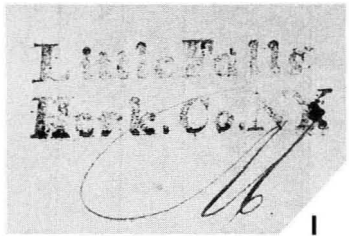 Little Falls
Herk. Co. N.Y.
I